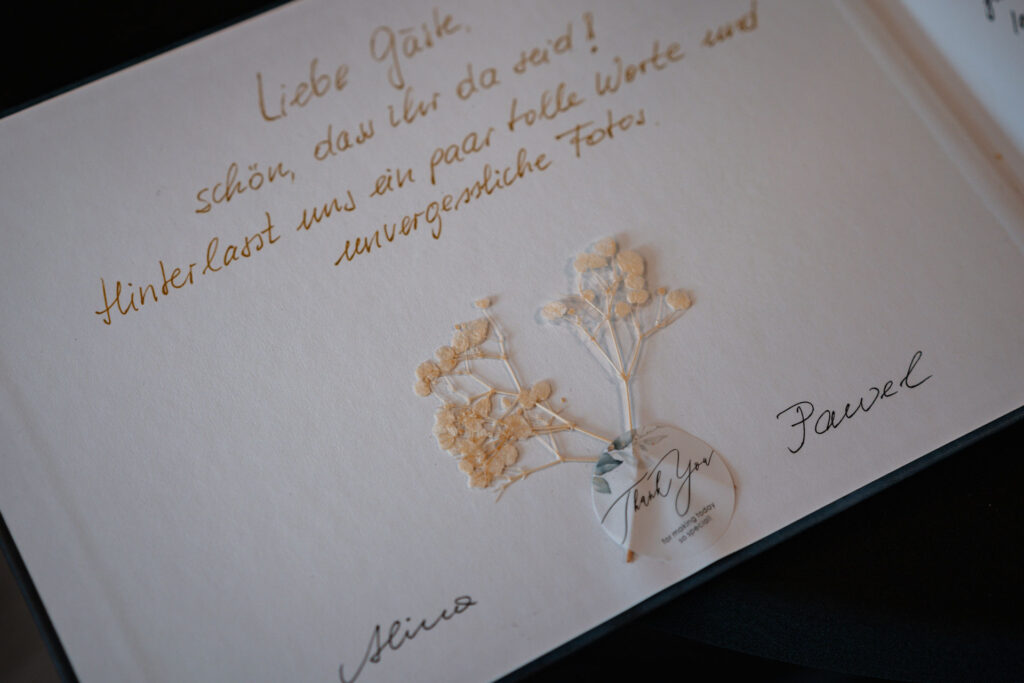 Liebe Gäste,
schön, dass ihr da seid!
Hinterlasst uns ein paar tolle Worte und
unvergessliche Fotos.
Pawel
Thank You
for making today
so special!
Alina